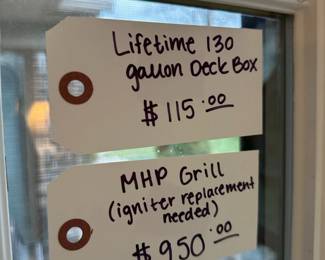 Lifetime 130
gallon Deck Box
$115.00
MHP Grill
(igniter replacement
needed)
$950.00